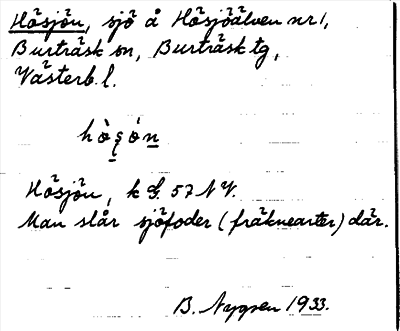 Hösjön, sjö å Hösjöälven nr 1,
Burträsk sn, Burträsk tg,
Västerb. l.
Hösjön, k bl. 57 N V.
Man slår sjöfoder (fräknearter) där.
B. Nygren 1933.